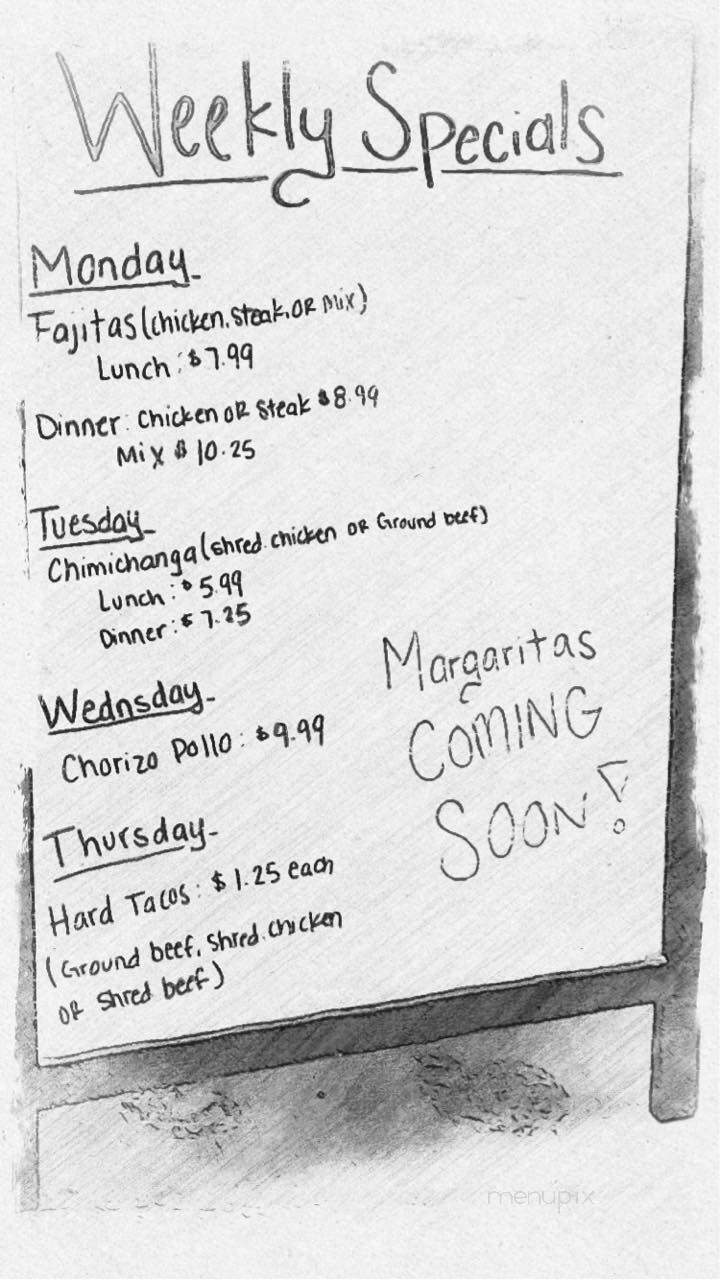 Weekly Specials
Monday-
Fajitas (chicken, steak, OR Mix)
Lunch: $7.99
Dinner: Chicken OR Steak $8.99
Mix $10.25
Tuesday-
Chimichanga (shred. chicken OR Ground beef)
Lunch: $5.99
Dinner: $7.25
Wednsday-
Chorizo Pollo: $9.99
Thursday-
Hard Tacos: $1.25 each
(Ground beef, shred. chicken
OR shred beef)
Margaritas
COMING
SOON!
menupix